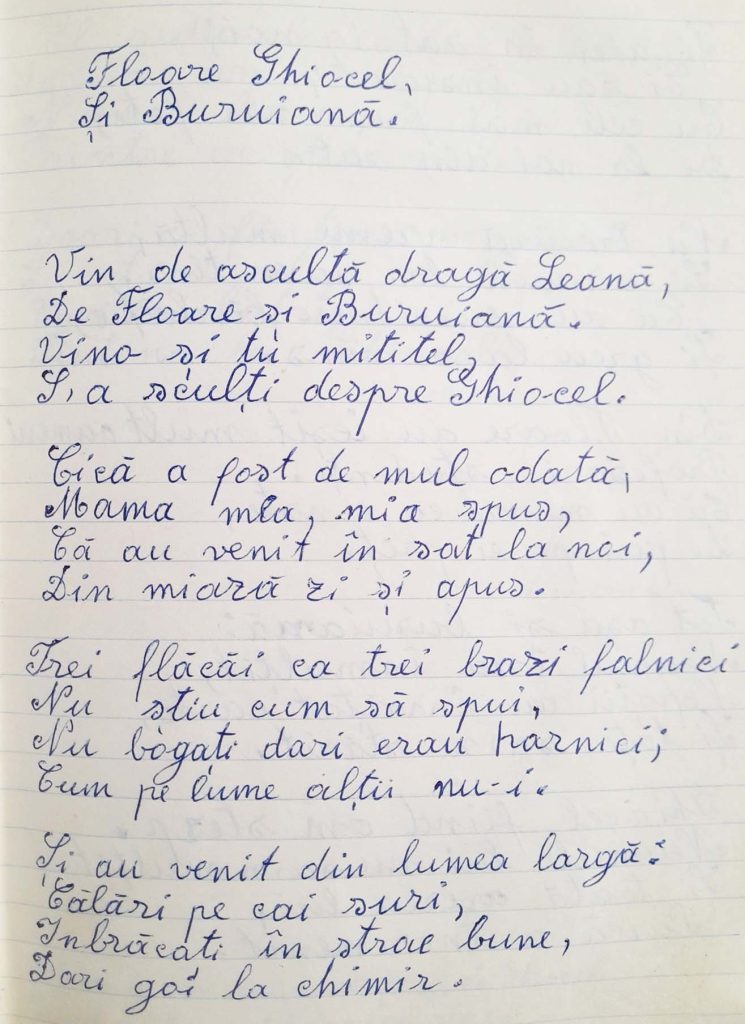 Floare Ghiocel,
Și Buruiană.
Vin de ascultă dragă Leană,
De Floare si Buruiană.
Vino și tu mititel,
S, a sculți despre Ghiocel.
Cică a fost de mul odată,
Mama mea, mia spus,
Că au venit în sat la noi,
Din miază zi și apus.
Trei flăcăi ca trei brazi falnici
Nu stiu cum să spui,
Nu bogați dari erau harnici;
Cum pe lume alții nu-i.
Și au venit din lumea largă:
Călări pe cai suri,
Inbrăcati în strae bune,
Dari goi la chimir.